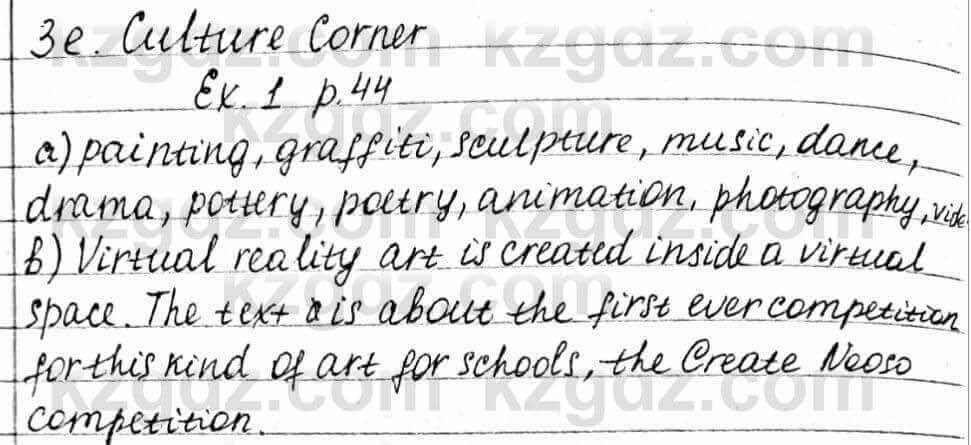 3e. Culture Corner
Ex. 1 p. 44
a) painting, graffiti, sculpture, music, dance,
drama, pottery, poetry, animation, photography,
b) Virtual reality art is created inside a virtual
space. The text is about the first ever competition
for this kind of art for schools, the Create Neoso
competition.
kzgdz.com